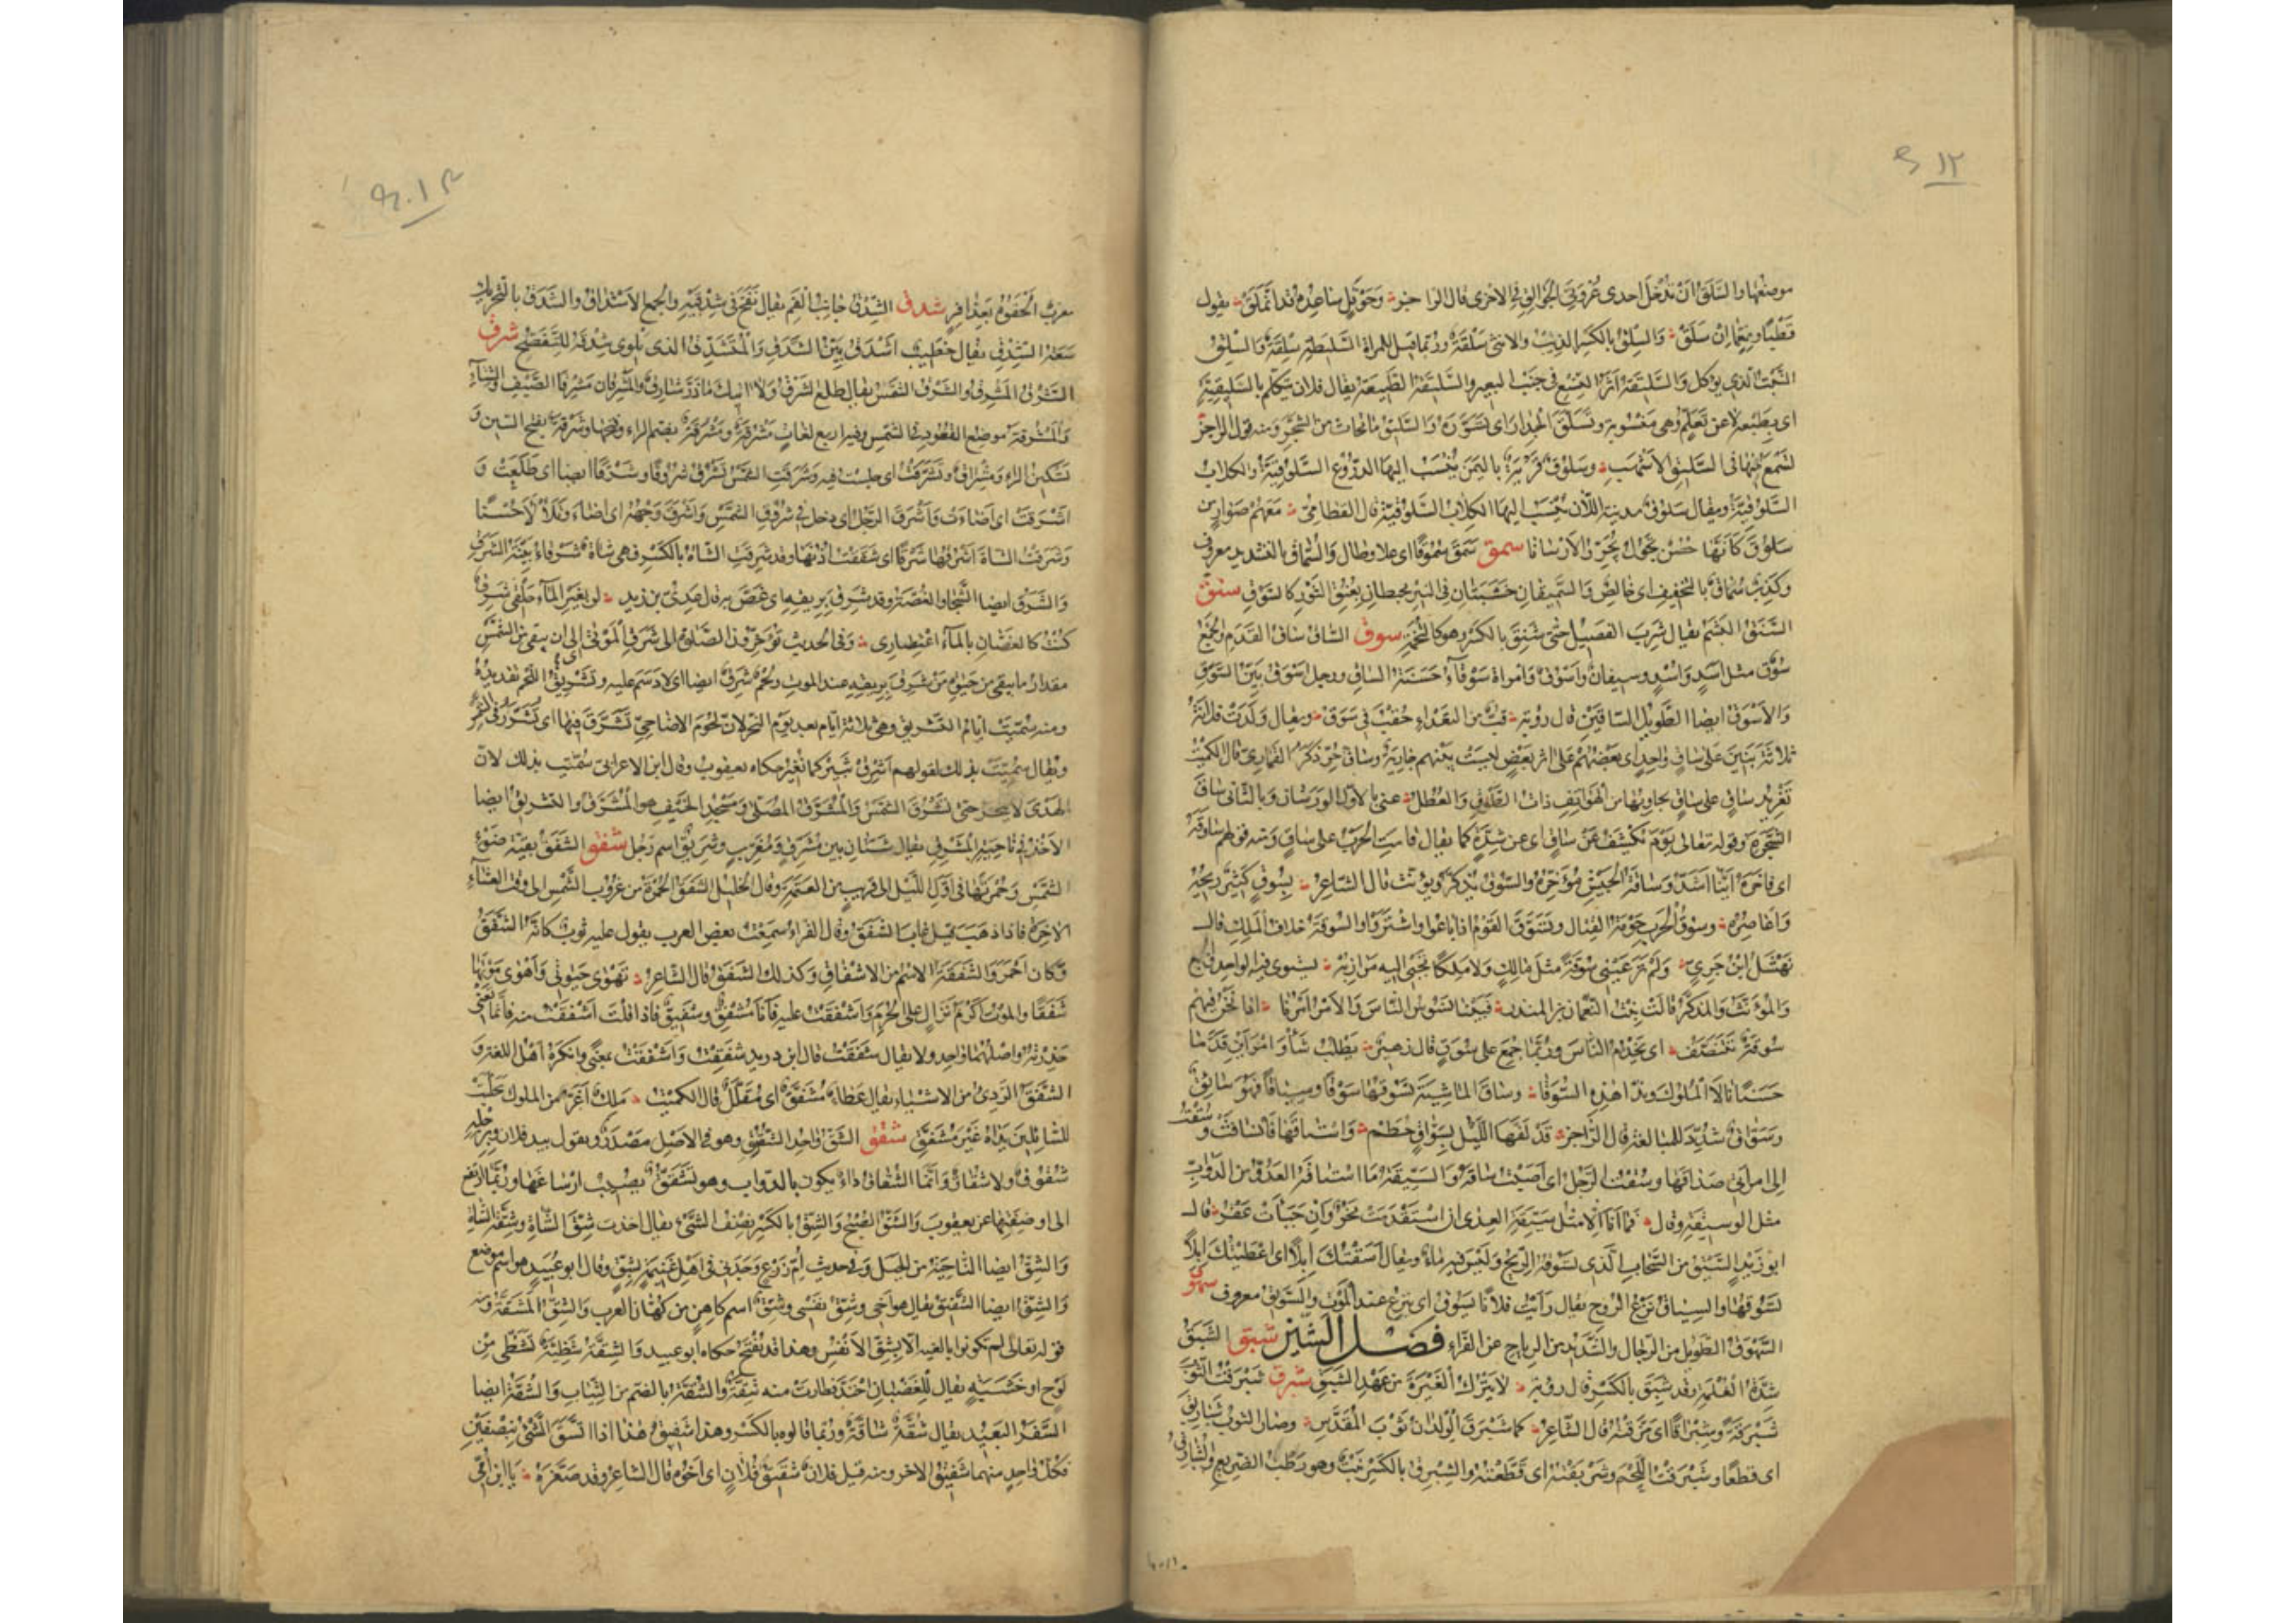 موضعها والسَّلَق ان تدخل احدى عروتى الجوالق فى الاخرى قال الراجز وحوقل ساعده قد انملق يقول
قطبا ونعما ان سلق والسِّلق بالكسر الذيب والانثى سلقة وربما قيل للمراة السليطة سلقة والسلق
النبت الذى يوكل والسليقة اثر النسع فى جنب البعير والسليقة الطبيعة يقال فلان يتكلم بالسليقية
اى بطبعه لا عن تعلم وهى منسوبة وتسلق الجدار اى تسوره والسليق ما تحات من الشجر ومنه قول الراجز
تسمع منها فى السليق الاشهب وسلوق قرية باليمن ينسب اليها الدروع السلوقية والكلاب
السلوقية ويقال سلوق مدينة اللان ينسب اليها الكلاب السلوقية قال القطامى معهم ضوار من
سلوق كانها حصن تجول تجرر الارسانا سمق سمق سموقا اى علا وطال والسماق بالتشديد معروف
وكذب سماق بالتخفيف اى خالص والسميقان خشبتان فى النير يحيطان بعنق الثور كالطوق سنق
السنق البشم يقال شرب الفصيل حتى سنق بالكسر وهو كالتخمة سوق الساق ساق القدم والجمع
سوق مثل اسد واسد وسيقان واسوق وامراة سوقاء حسنة الساق ورجل اسوق بين السوق
والاسوق ايضا الطويل الساقين قال روبة قب من التعداء حقب فى سوق ويقال ولدت فلانة
ثلاثة بنين على ساق واحد اى بعضهم على اثر بعض ليست بينهم جارية وساق حر ذكر القمارى قال الكميت
تغريد ساق على ساق يجاوبها من الهواتف ذات الطوق والعطل عنى بالاول الورشان وبالثانى ساق
الشجرة وقوله تعالى يوم يكشف عن ساق اى عن شدة كما يقال قامت الحرب على ساق ومنه قولهم ساوقه
اى فاخره اينا اشد وساقة الجيش موخره والسوق يذكر ويونث قال الشاعر بسوق كثير ريحه
واعاصره وسوق الحرب حومة القتال وتسوق القوم اذا باعوا واشتروا والسوقة خلاف الملك قال
نهشل ابن حرى ولم تر عينى سوقة مثل مالك ولا ملكا تجبى اليه مرازبه يستوى فيه الواحد والجمع
والمونث والمذكر قالت بنت النعمان بن المنذر فبينا نسوس الناس والامر امرنا اذا نحن فيهم
سوقة نتنصف اى نخدم الناس وربما جمع على سوق قال زهير يطلب شاو امراين قدما
حسنا نالا الملوك وبذا هذه السوقا وساق الماشية يسوقها سوقا وسياقا فهو سايق
وسواق شدد للمبالغة قال الراجز قد لفها الليل بسواق حطم واستاقها فانساقت وسقت
الى امراتى صداقها وسقت الرجل اى اصبت ساقه والسيقة ما استاقه العدو من الدواب
مثل الوسيقة وقال فما انا الا مثل سيقة العدى ان استقدمت نحر وان جبات عقر قال
ابو زيد السيق من السحاب الذى تسوقه الريح وليس فيه ماء ويقال اسقتك ابلا اى اعطيتك ابلا
تسوقها والسياق نزع الروح يقال رايت فلانا يسوق اى ينزع عند الموت والسويق معروف سهوق
السهوق الطويل من الرجال والشديد من الرياح عن الفراء فصل الشين شبق الشبق
شدة الغلمة وقد شبق بالكسر قال روبة لا يترك الغيرة من عهد الشبق شبرق شبرقت الثوب
شبرقة وشبراقا اى مزقته قال الشاعر كما شبرق الولدان ثوب المقدس وصار الثوب شباريق
اى قطعا وشبرقت اللحم وشربقته اى قطعته والشبرق بالكسر نبت وهو رطب الضريع والشبارق
معرب شدق الشدق جانب الفم يقال نفخ فى شدقيه والجمع الاشداق والشدق بالتحريك
سعة الشدق يقال خطيب اشدق بين الشدق والمتشدق الذى يلوى شدقه للتفصح شرق
الشرق المشرق والشرق الشمس يقال طلع الشرق ولا اتيك ما ذر شارق والمشرقان مشرقا الصيف والشتاء
والمشرقة موضع القعود فى الشمس وفيه اربع لغات مشرقة ومشرقة بضم الراء وفتحها وشرقة بفتح الشين و
تسكين الراء ومشراق وتشرقت اى جلست فيه وشرقت الشمس تشرق شروقا وشرقا ايضا اى طلعت و
اشرقت اى اضاءت واشرق الرجل اى دخل فى شروق الشمس واشرق وجهه اى اضاء وتلالا حسنا
وشرقت الشاة اشرقها شرقا اى شققت اذنها وقد شرقت الشاة بالكسر فهى شاة شرقاء بينة الشرق
والشرق ايضا الشجا والغصة وقد شرق بريقه اى غص به قال عدى بن زيد لو بغير الماء حلقى شرق
كنت كالغصان بالماء اعتصارى وفى الحديث توخرون الصلوة الى شرق الموتى اى الى ان يبقى من الشمس
مقدار ما يبقى من حيوة من شرق بريقه عند الموت ولحم شرق ايضا اى لا دسم عليه وتشريق اللحم تقديده
ومنه سميت ايام التشريق وهى ثلاثة ايام بعد يوم النحر لان لحوم الاضاحى تشرق فيها اى تشرر فى الشمس
ويقال سميت بذلك لقولهم اشرق ثبير كيما نغير حكاه يعقوب وقال ابن الاعرابى سميت بذلك لان
الهدى لا ينحر حتى تشرق الشمس والمشرق المصلى ومسجد الخيف هو المشرق والتشريق ايضا
الاخذ فى ناحية المشرق يقال شتان بين مشرق ومغرب وشريق اسم رجل شفق الشفق بقية ضوء
الشمس وحمرتها فى اول الليل الى قريب من العتمة وقال الخليل الشفق الحمرة من غروب الشمس الى وقت العشاء
الاخرة فاذا ذهب قيل غاب الشفق وقال الفراء سمعت بعض العرب يقول عليه ثوب كانه الشفق
وكان احمر والشفقة الاسم من الاشفاق وكذلك الشفق قال الشاعر تهوى حيوتى واهوى موتها
شفقا والموت اكرم نزال على الحرم واشفقت عليه فانا مشفق وشفيق فاذا قلت اشفقت منه فانما تعنى
حذرته واصلهما واحد ولا يقال شفقت قال ابن دريد شفقت واشفقت بمعنى وانكره اهل اللغة و
الشفق الردى من الاشياء يقال عطاء مشفق اى مقلل قال الكميت ملك اغر من الملوك تحلبت
للسائلين يداه غير مشفق شقق الشق واحد الشقوق وهو فى الاصل مصدر وتقول بيد فلان وبرجله
شقوق ولا شقاق وانما الشقاق داء يكون بالدواب وهو تشقق يصيب ارساغها وربما ارتفع
الى اوظفتها عن يعقوب والشق الصبح والشق بالكسر نصف الشىء يقال اخذت شق الشاة وشقة الشاة
والشق ايضا الناحية من الجبل وفى حديث ام زرع وجدنى فى اهل غنيمة بشق وقال ابو عبيد هو اسم موضع
والشق ايضا الشقيق يقال هو اخى وشق نفسى وشق اسم كاهن من كهان العرب والشق المشقة ومنه
قوله تعالى لم تكونوا بالغيه الا بشق الانفس وهذا قد يفتح حكاه ابو عبيد والشقة شظية تشظى من
لوح او خشبة يقال للغضبان احتد فطارت منه شقة والشقة بالضم من الثياب والشقة ايضا
السفر البعيد يقال شقة شاقة وربما قالوه بالكسر وهذا شقيق هذا اذا انشق الشىء بنصفين
فكل واحد منهما شقيق الاخر ومنه قيل فلان شقيق فلان اى اخوه قال الشاعر وقد صغره يا ابن امى